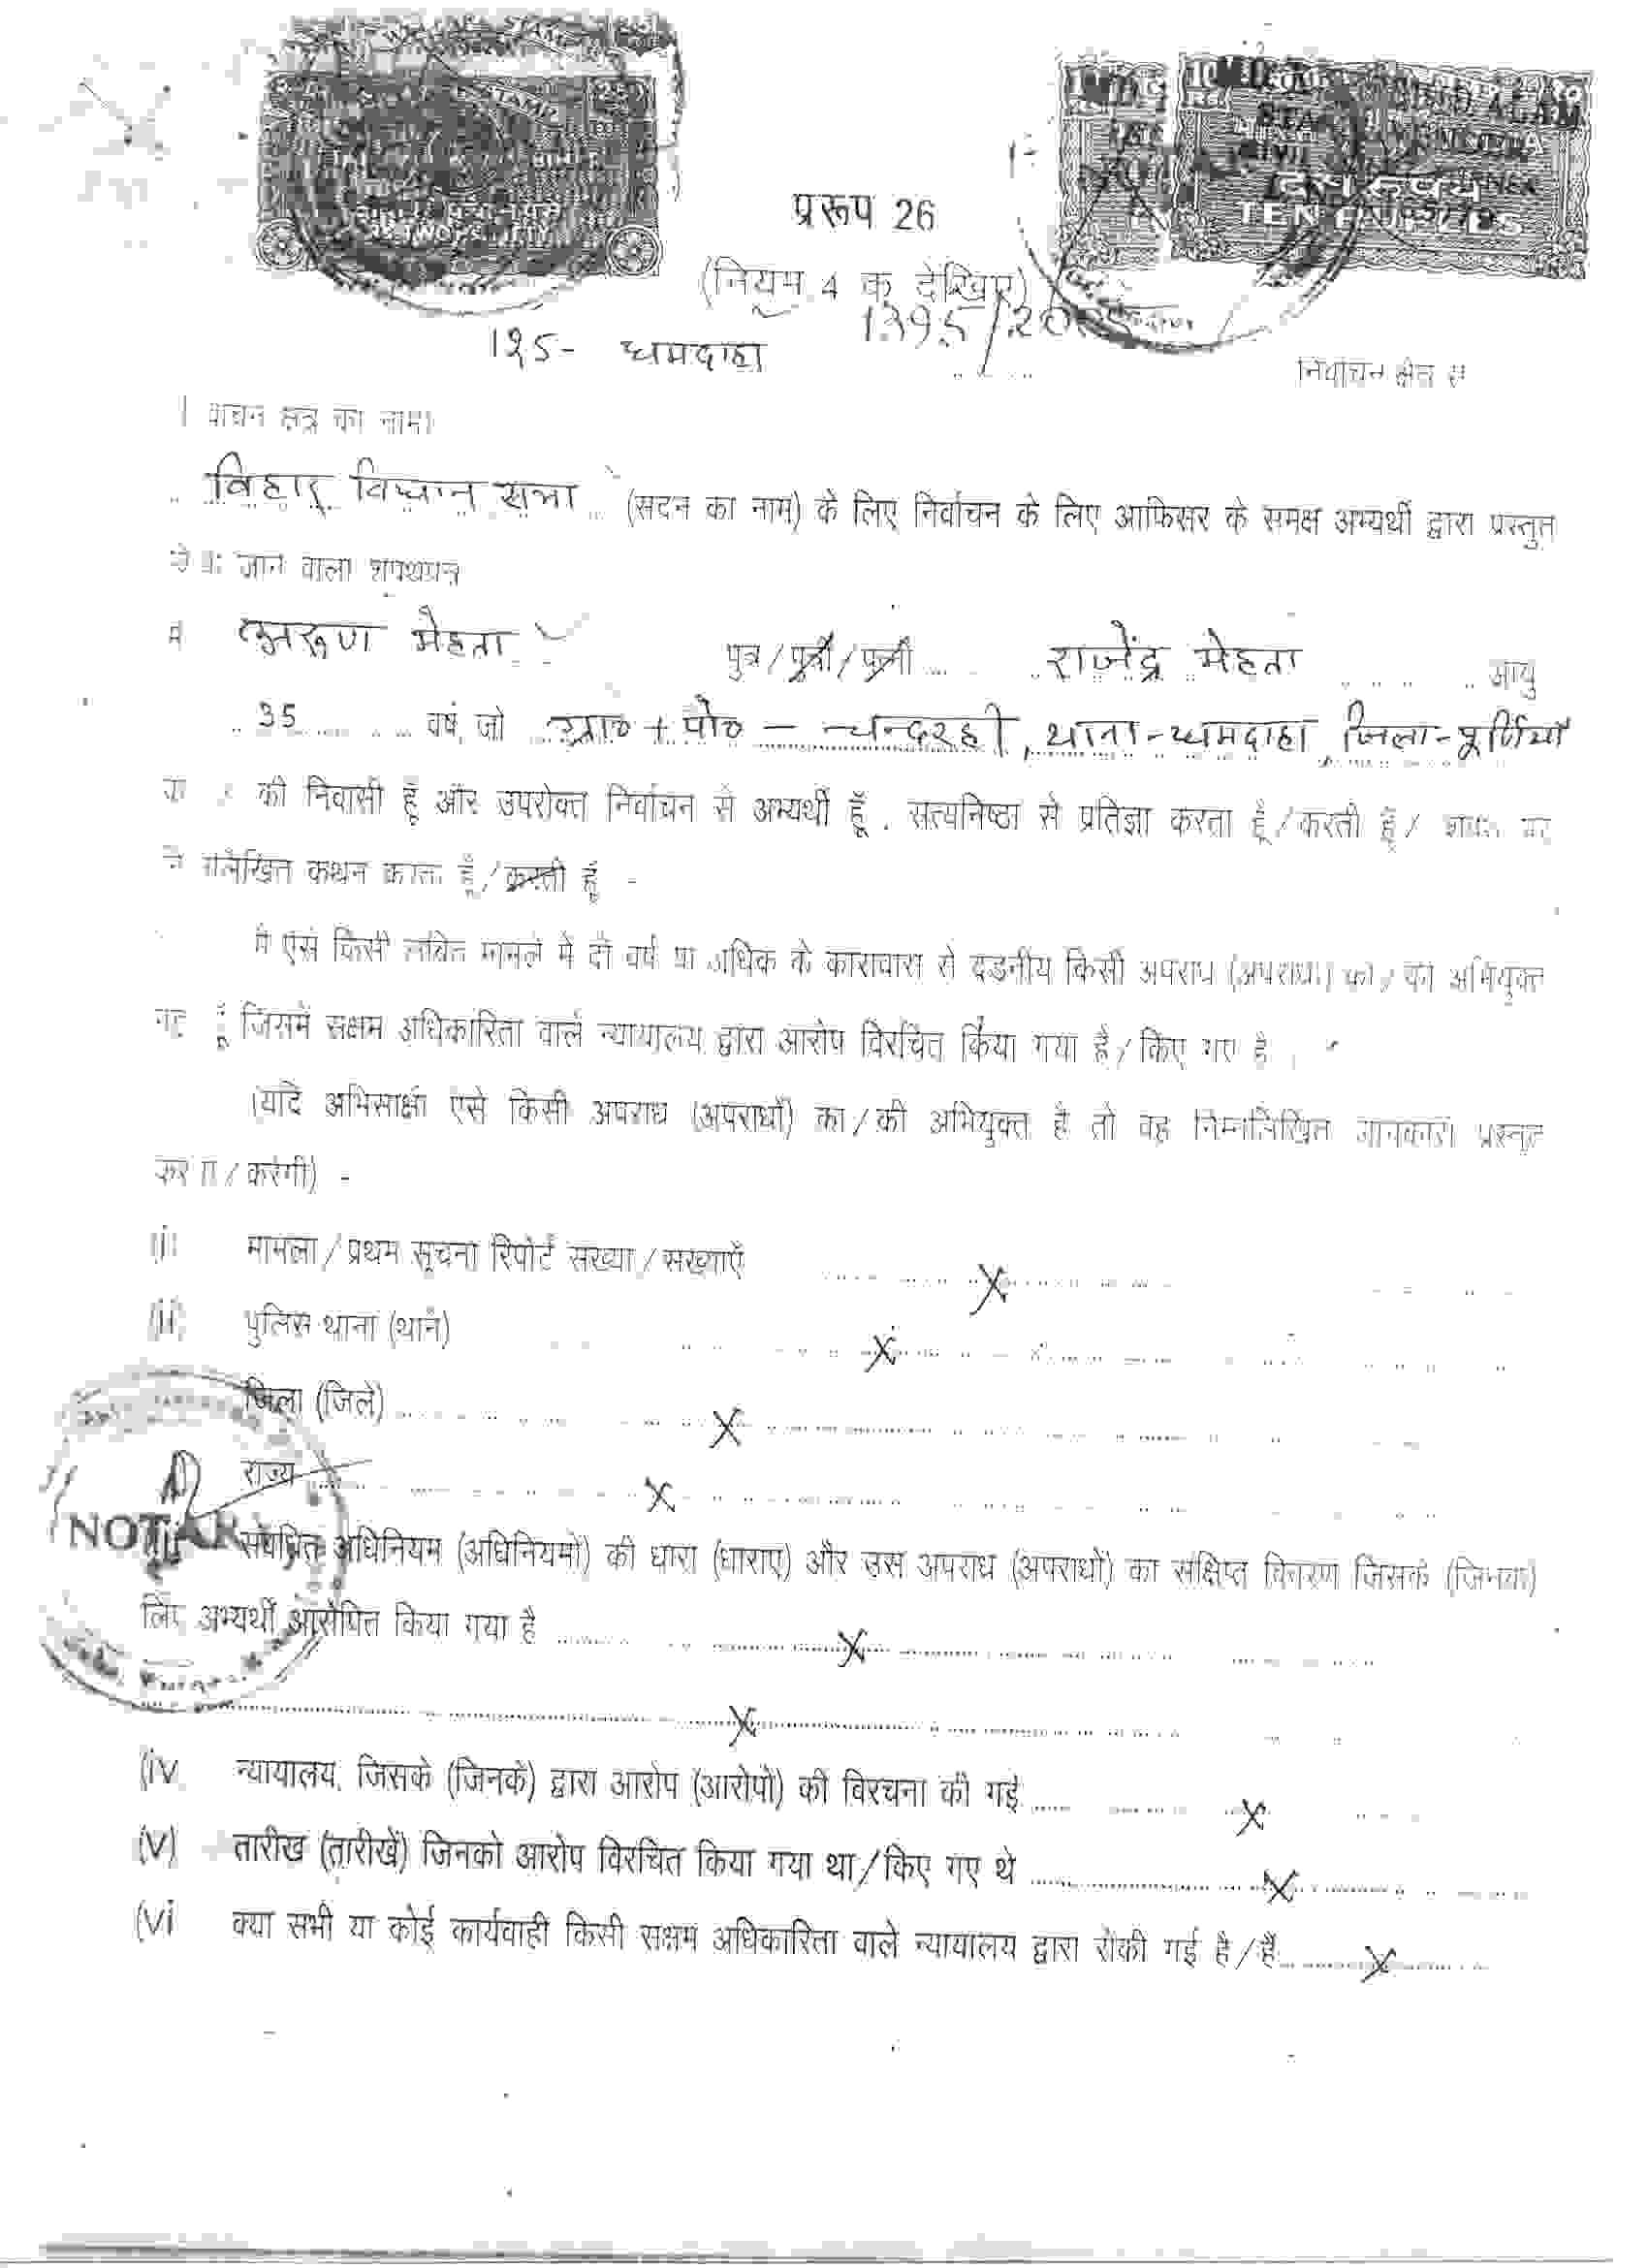 TEN RUPEES
प्ररूप 26
(नियम 4 क देखिए)
1395/20
125- धमदाहा
निर्वाचन क्षेत्र से
वाचन क्षेत्र का नाम)
बिहार विधान सभा (सदन का नाम) के लिए निर्वाचन के लिए आफिसर के समक्ष अभ्यर्थी द्वारा प्रस्तुत
जाने वाला शपथपत्र
मेहता पुत्र/पुत्री/पत्नी राजेंद्र मेहता आयु
35 वर्ष जो ग्रा० + पो० - चन्दरही, थाना-धमदाहा, जिला-पूर्णियाँ
की निवासी हूँ और उपरोक्त निर्वाचन से अभ्यर्थी हूँ, सत्यनिष्ठा से प्रतिज्ञा करता हूँ/करती हूँ/
कथन करता हूँ/करती हूँ -
मै ऐसे किसी लंबित मामले में दो वर्ष या अधिक के कारावास से दंडनीय किसी अपराध (अपराधों) का/की अभियुक्त
हूँ जिसमें सक्षम अधिकारिता वाले न्यायालय द्वारा आरोप विरचित किया गया है/किए गए है
(यदि अभिसाक्षी ऐसे किसी अपराध (अपराधों) का/की अभियुक्त है तो वह निम्नलिखित जानकारी प्रस्तुत
/करेगी) -
(i) मामला/प्रथम सूचना रिपोर्ट संख्या/संख्याएँ X
(ii) पुलिस थाना (थाने) X
जिला (जिले) X
राज्य X
NOTARY
संबंधित अधिनियम (अधिनियमों) की धारा (धाराएं) और उस अपराध (अपराधों) का संक्षिप्त विवरण जिसके (जिनके)
लिए अभ्यर्थी आरोपित किया गया है X
X
(iv न्यायालय, जिसके (जिनके) द्वारा आरोप (आरोपों) की विरचना की गई X
(v) तारीख (तारीखें) जिनको आरोप विरचित किया गया था/किए गए थे X
(vi क्या सभी या कोई कार्यवाही किसी सक्षम अधिकारिता वाले न्यायालय द्वारा रोकी गई है/हैं X